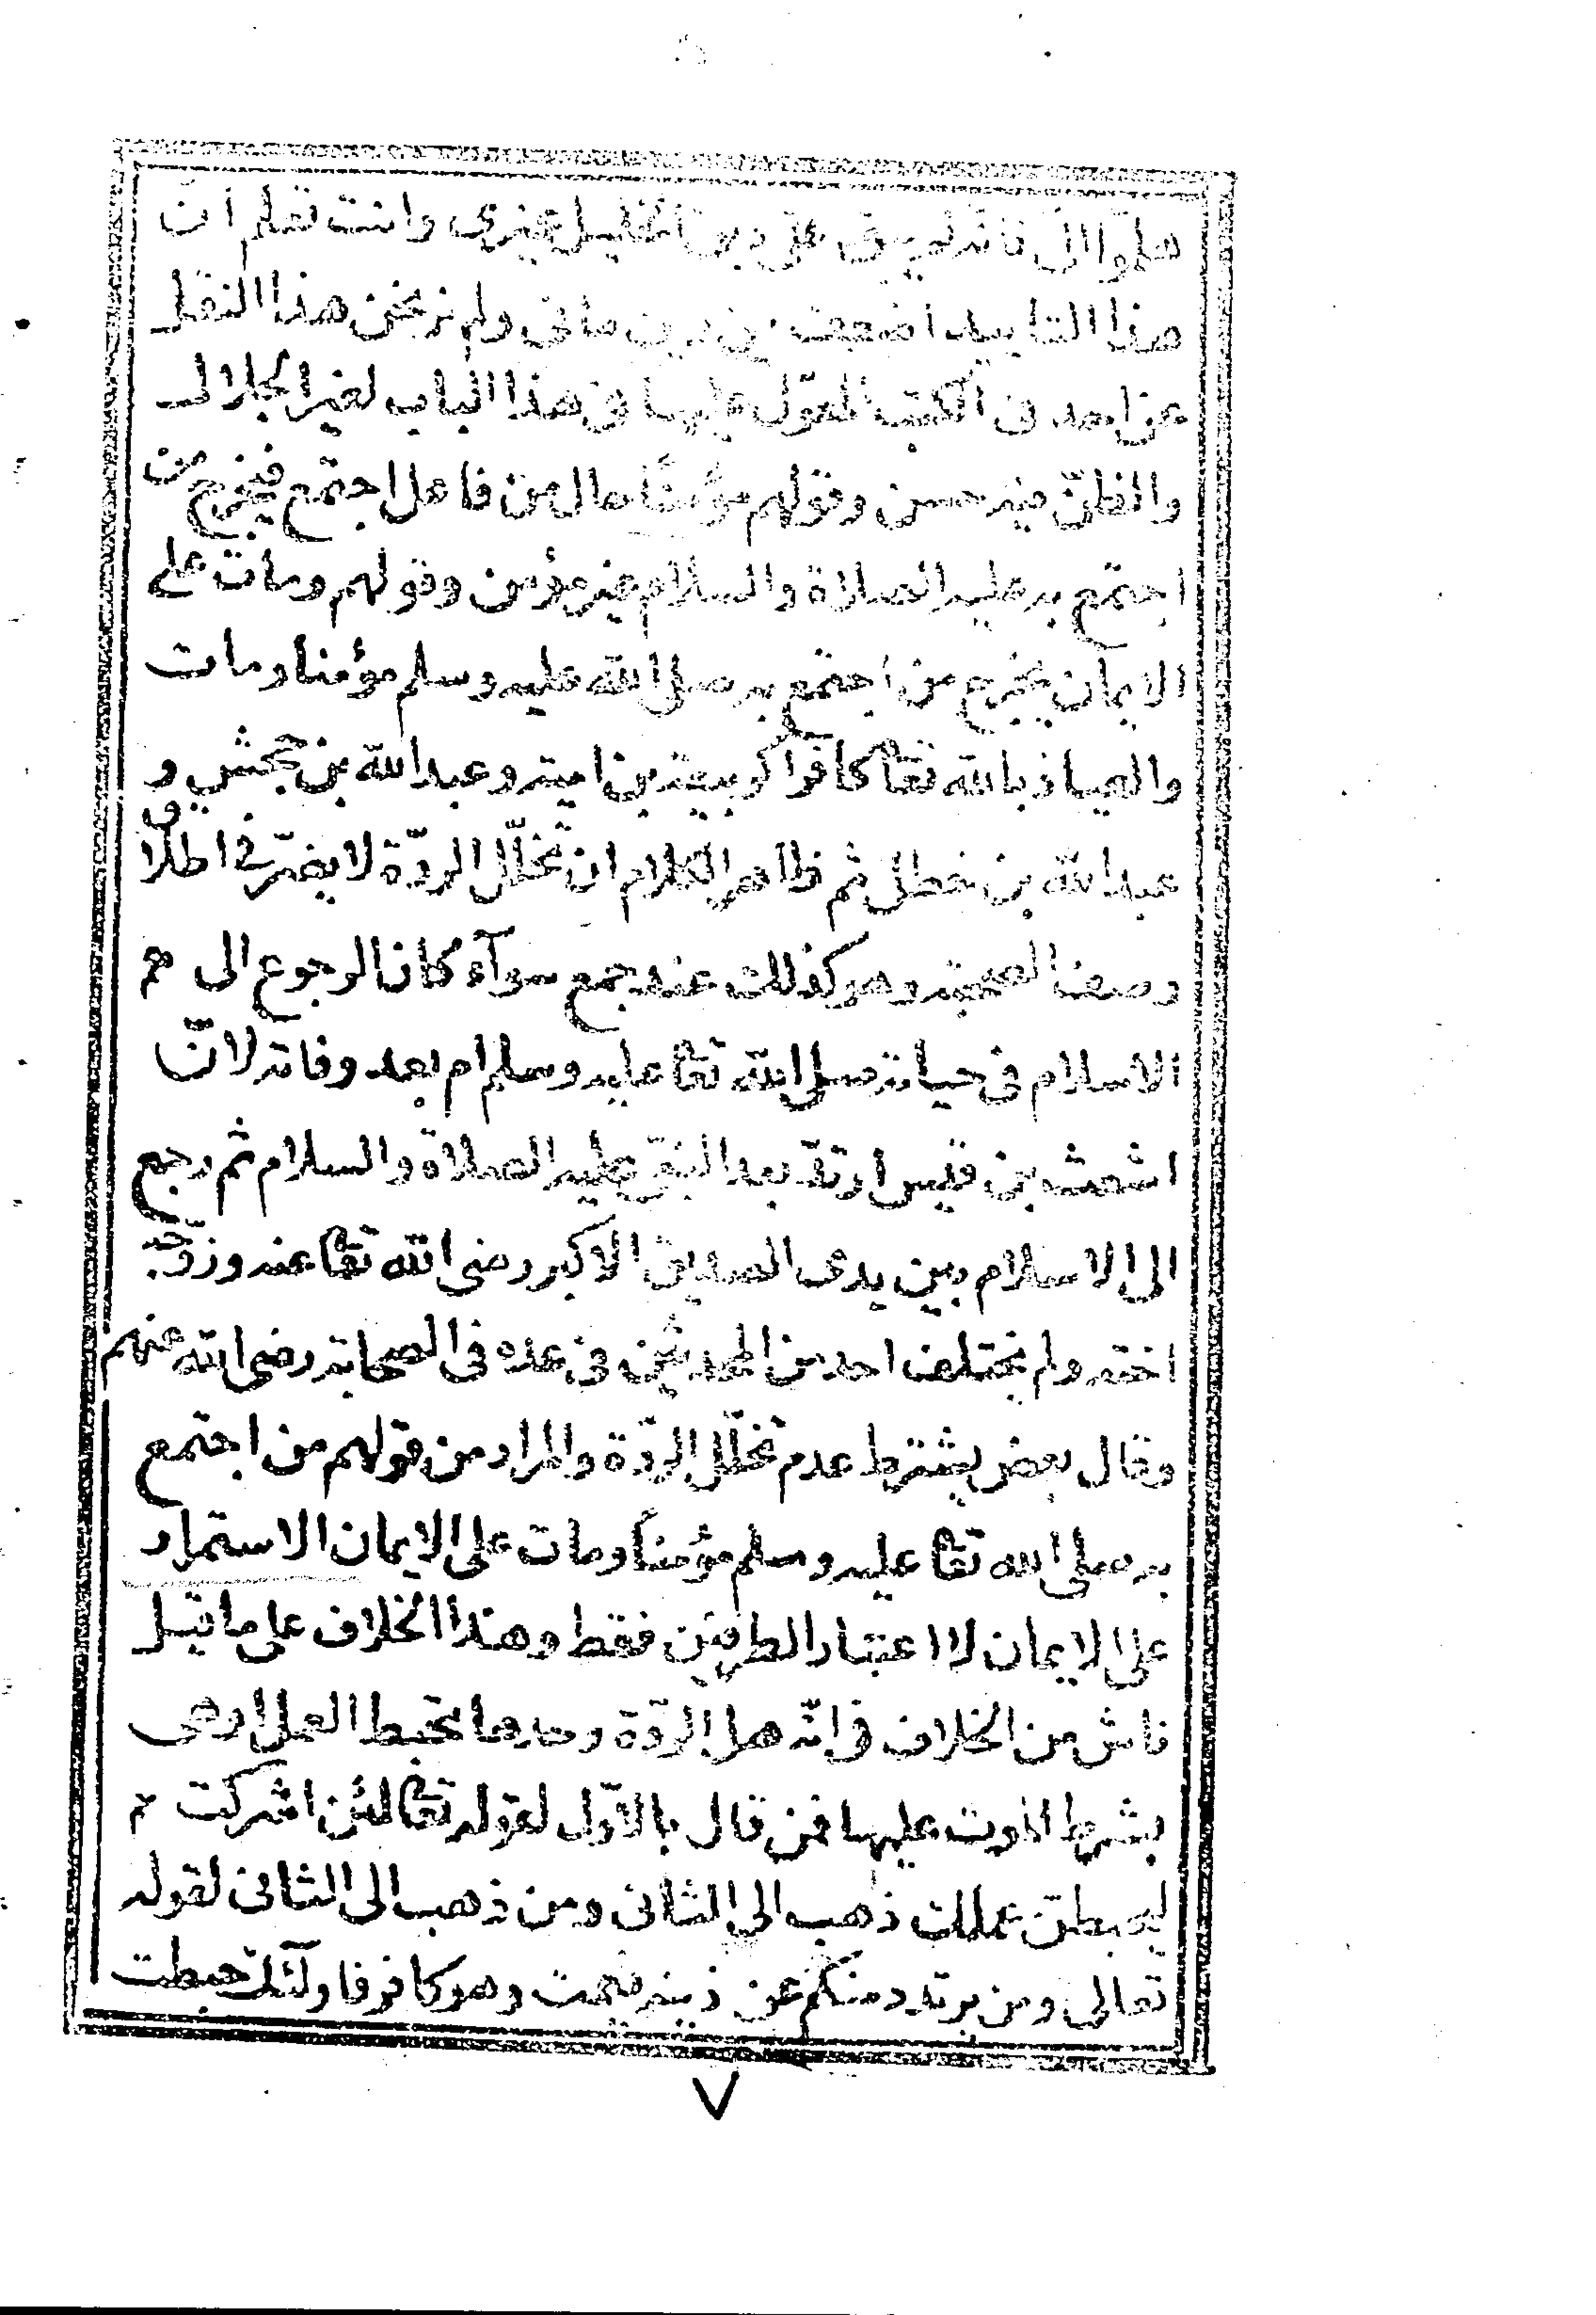 هلموا الى فانه لم يبق على دين الخليل غيرى وانت تعلم ان
هذا التاييد اضعف من دين مانى ولم نر نحن هذا النقل
عن احد فى الكتب المعوّل عليها فى هذا الباب لغير الجلال
والظنّ فيه حسن وقولهم مؤمنًا حال من فاعل اجتمع فيخرج من
اجتمع به عليه الصلاة والسلام غير مؤمن وقولهم ومات على
الايمان يخرج من اجتمع به صلى الله عليه وسلم مؤمنا ومات
والعياذ بالله تعا كافرا كربيعة بن امية وعبد الله بن جحش و
عبد الله بن خطل ثم ظاهر الكلام ان تخلّل الردّة لا يضرّ فى اطلاق
وصف الصحبة وهو كذلك عند جمع سوآء كان الرجوع الى
الاسلام فى حياته صلى الله تعا عليه وسلم ام بعد وفاته لانّ
اشعث بن قيس ارتد بعد النبىّ عليه الصلاة والسلام ثم رجع
الى الاسلام بين يدى الصديق الاكبر رضى الله تعا عنه وزوّجه
اخته ولم يختلف احد من المحدثين فى عده فى الصحابة رضى الله عنهم
وقال بعض يشترط عدم تخلّل الردّة والمراد من قولهم من اجتمع
به صلى الله تعا عليه وسلم مؤمنًا ومات على الايمان الاستمرار
على الايمان لا اعتبار الطرفين فقط وهذا الخلاف على ما قيل
ناش من الخلاف فى انّه هل الردّة وحدها تحبط العمل او هى
بشرط الموت عليها فمن قال بالاوّل لقوله تعا لئن اشركت
ليحبطنّ عملك ذهب الى الثانى ومن ذهب الى الثانى لقوله
تعالى ومن يرتدد منكم عن دينه فيمت وهو كافر فاولئك حبطت
٧